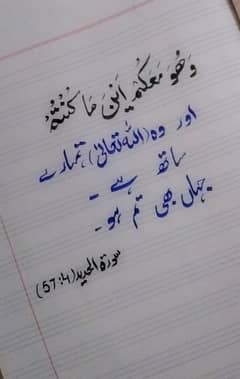 وَهُوَ مَعَكُمْ اَيْنَ مَا كُنْتُمْ
اور وہ (اللہ تعالیٰ) تمہارے
ساتھ ہے -
جہاں بھی تم ہو -
سورۃ الحدید (57:4)